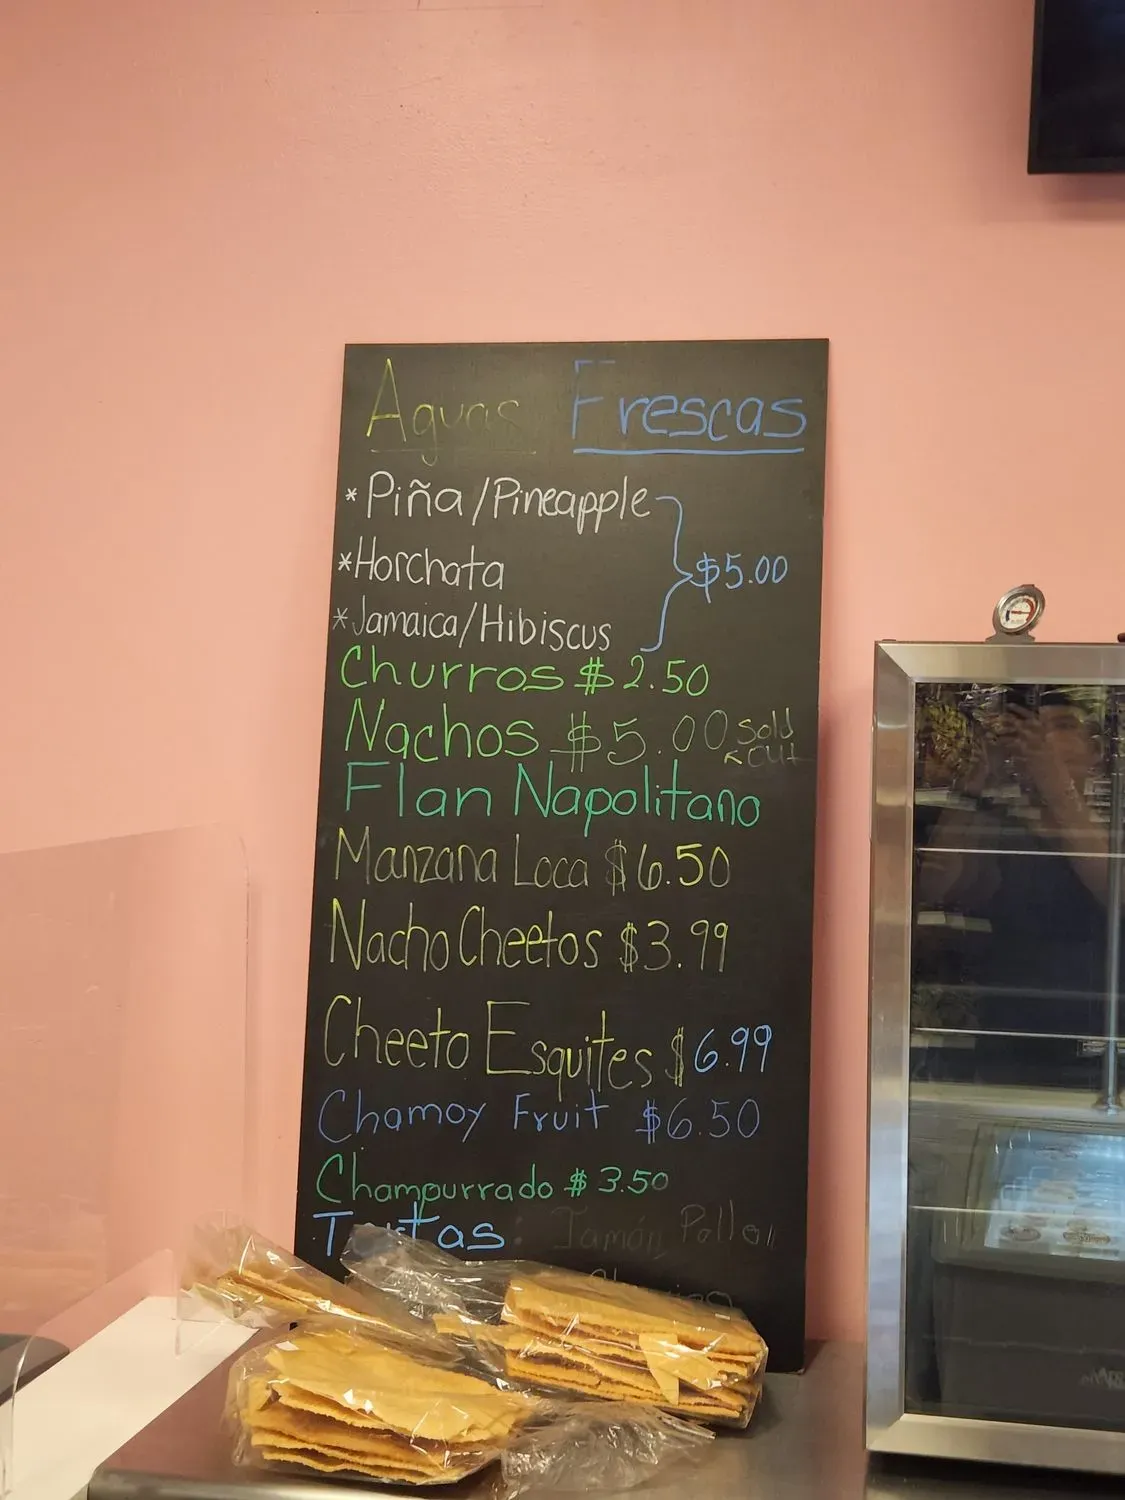 Aguas Frescas
* Piña/Pineapple
* Horchata
$5.00
* Jamaica/Hibiscus
Churros $2.50
Nachos $5.00 Sold out
Flan Napolitano
Manzana Loca $6.50
Nacho Cheetos $3.99
Cheeto Esquites $6.99
Chamoy Fruit $6.50
Champurrado $3.50
Tortas: Jamón Pollo